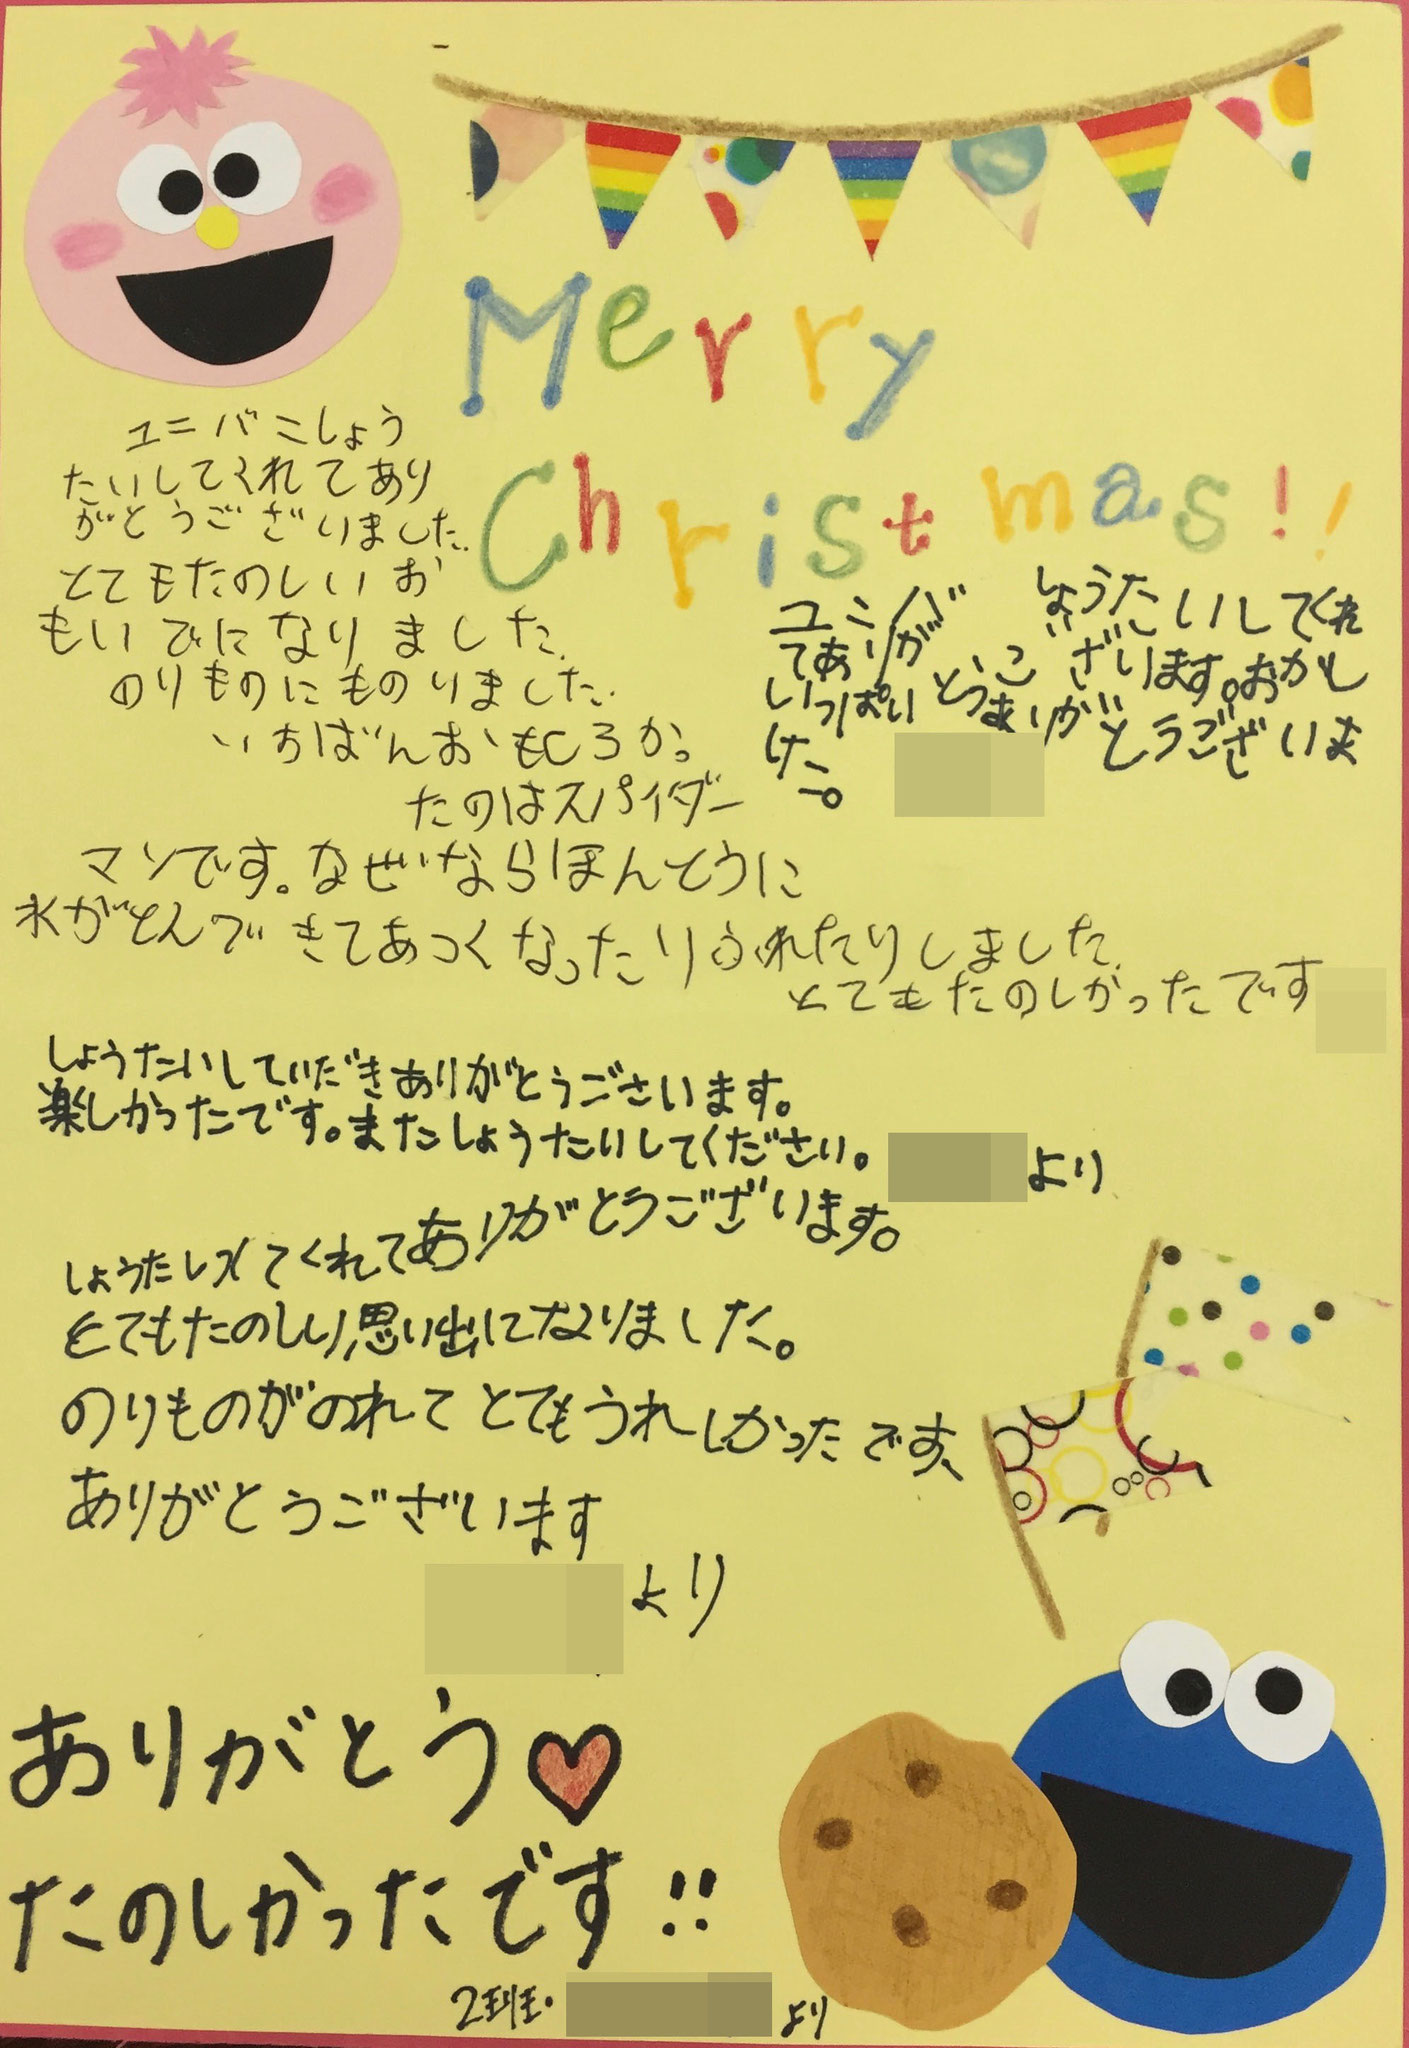 Merry
Christmas!!
ユニバにしょう
たいしてくれてあり
がとうございました。
とてもたのしいお
もいでになりました。
のりものにものりました。
いちばんおもしろかっ
たのはスパイダー
マンです。なぜならほんとうに
水がとんできてあつくなったりふれたりしました。
とてもたのしかったです
ユニバ しょうたいしてくれ
てありがとうございます。おかし
いっぱいありがとうございま
した。
しょうたいしていだきありがとうございます。
楽しかったです。またしょうたいしてください。
より
しょうたいしてくれてありがとうございます。
とてもたのしい思い出になりました。
のりものがのれてとてもうれしかったです、
ありがとうございます
より
ありがとう♡
たのしかったです!!
2班・
より